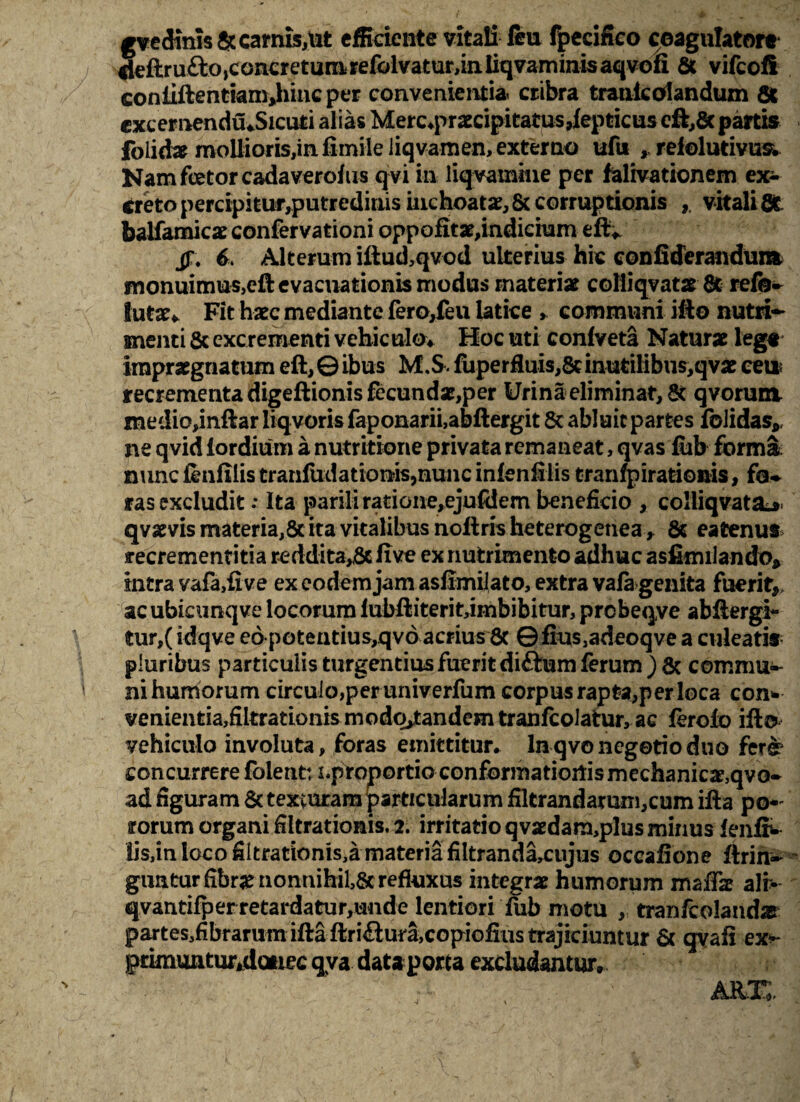 gvedinis & carnis,ut efficiente vitali ſeu ſpecifico coagulatore
deſtructo,concretum reſolvatur,in liqvaminis aqvoſi & viſcoſi
conſiſtentiam,hinc per convenientia cribra tranſcolandum &
excernendū.Sicuti alias Merc.præcipitatus,ſepticus eſt,& partis
ſolidæ mollioris,in ſimile liqvamen, externo uſu , reſolutivus.
Nam fœtor cadaveroſus qvi in liqvamine per ſalivationem ex-
creto percipitur,putredinis inchoatæ,& corruptionis , vitali &
balſamicæ conſervationi oppoſitæ,indicium eſt.
§. 6. Alterum iſtud,qvod ulterius hic conſiderandum
monuimus,eſt evacuationis modus materiæ colliqvatæ & reſo-
lutæ. Fit hæc mediante ſero,ſeu latice , communi iſto nutri-
menti & excrementi vehiculo. Hoc uti conſvetâ Naturæ lege
imprægnatum eſt,🜔ibus M.S. ſuperfluis,& inutilibus,qvæ ceu
recrementa digeſtionis ſecundæ,per Urinâ eliminat, & qvorum
medio,inſtar liqvoris ſaponarii,abſtergit & abluit partes ſolidas,
ne qvid ſordium à nutritione privata remaneat, qvas ſub formâ
nunc ſenſilis tranſudationis,nunc inſenſilis tranſpirationis, fo-
ras excludit : Ita parili ratione,ejuſdem beneficio , colliqvata,
qvævis materia,& ita vitalibus noſtris heterogenea, & eatenus
recrementitia reddita,& ſive ex nutrimento adhuc asſimilando,
intra vaſa,ſive ex eodem jam asſimilato, extra vaſa genita fuerit,
ac ubicunqve locorum ſubſtiterit,imbibitur, probeqve abſtergi-
tur,( idqve eò potentius,qvò acrius & 🜔ſius,adeoqve a culeatis
pluribus particulis turgentius fuerit dictum ſerum ) & commu-
ni humorum circulo,per univerſum corpus rapta,per loca con-
venientia,filtrationis modo,tandem tranſcolatur, ac ſeroſo iſto
vehiculo involuta, foras emittitur. In qvo negotio duo ferè
concurrere ſolent: 1.proportio conformationis mechanicæ,qvo-
ad figuram & texturam particularum filtrandarum,cum iſta po-
rorum organi filtrationis. 2. irritatio qvædam,plus minus ſenſi-
lis,in loco filtrationis,à materiâ filtrandâ,cujus occaſione ſtrin-
guntur fibræ nonnihil,& refluxus integræ humorum maſſæ ali-
qvantiſper retardatur,unde lentiori ſub motu , tranſcolandæ
partes,fibrarum iſtâ ſtricturâ,copioſius trajiciuntur & qvaſi ex-
primuntur,donec qva data porta excludantur.
ART.